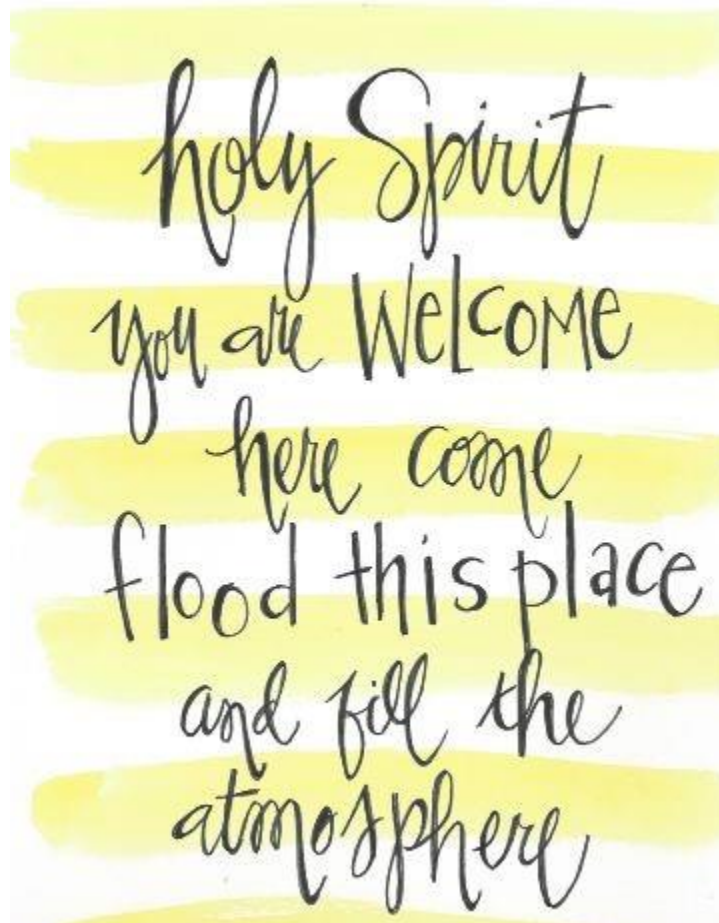 holy Spirit
you are Welcome
here come
flood this place
and fill the
atmosphere